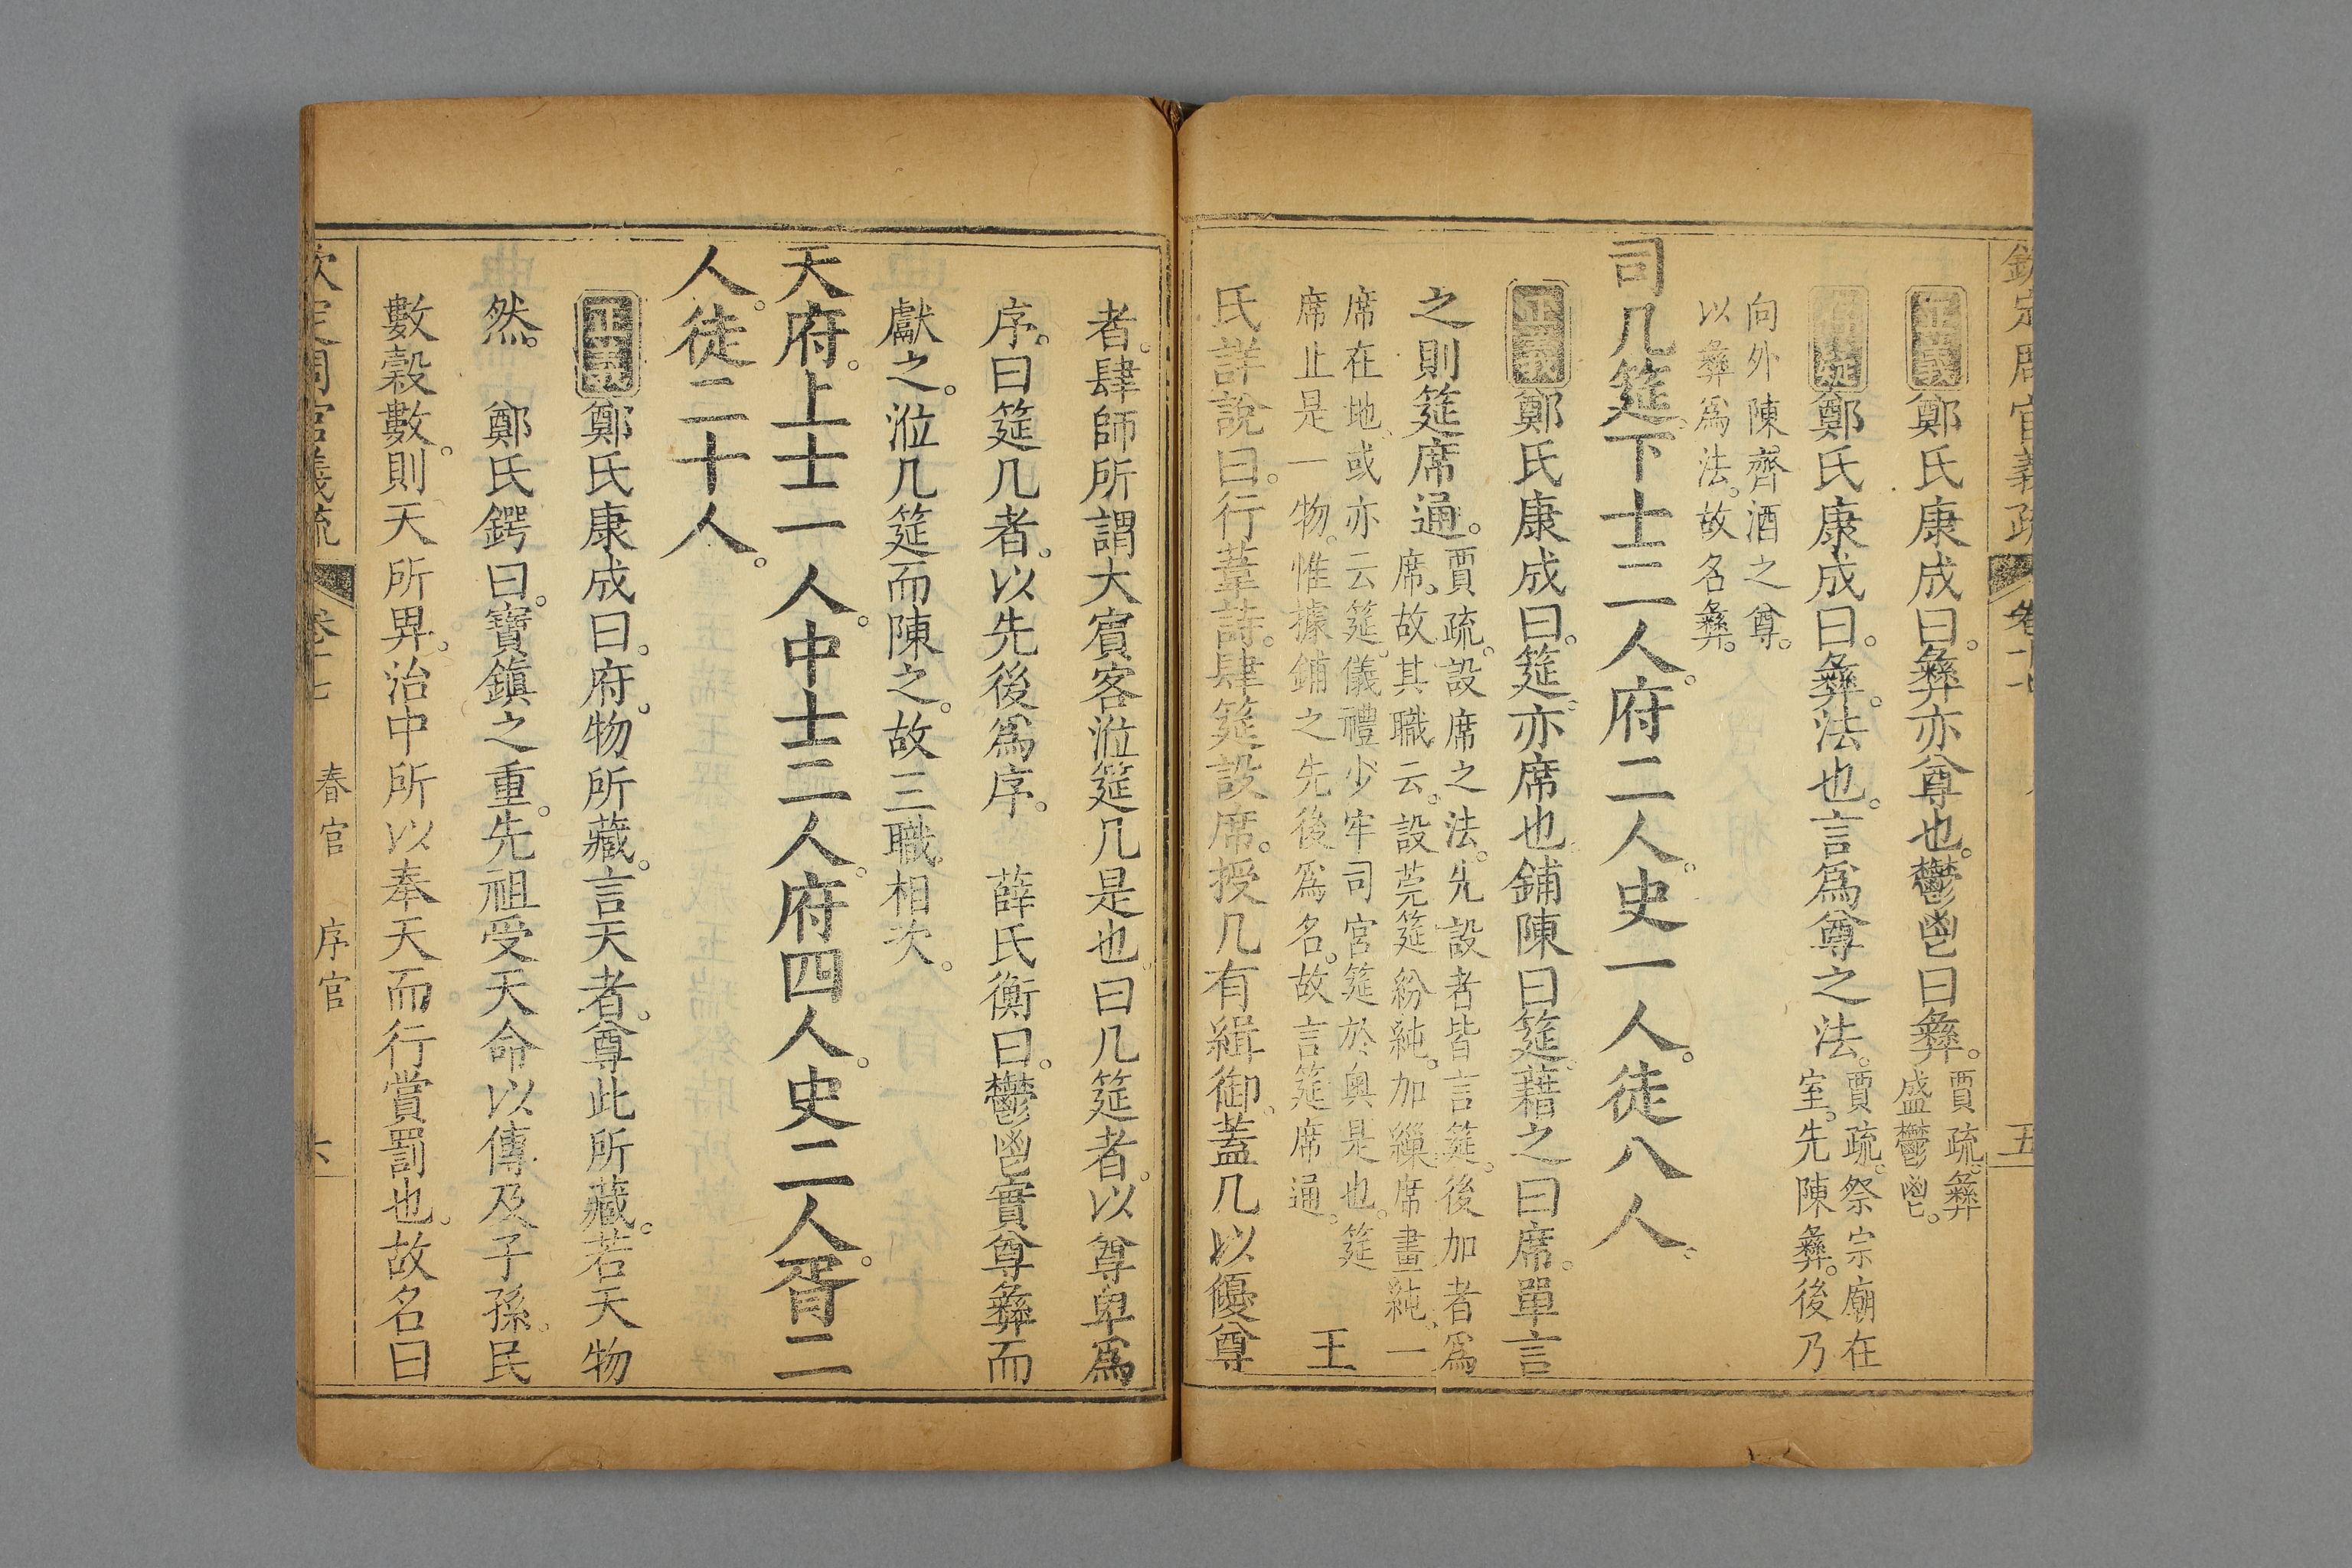 欽定周官義疏 卷十七 五
正義鄭氏康成曰。彝亦尊也。鬱鬯曰彝。賈疏。彝
盛鬱鬯。
存疑鄭氏康成曰。彝。法也。言爲尊之法。賈疏。祭宗廟在
室。先陳彝。後乃
向外陳齊酒之尊。
以彝爲法。故名彝。
司几筵。下士二人。府二人。史一人。徒八人。
正義鄭氏康成曰。筵。亦席也。鋪陳曰筵。藉之曰席。單言
之則筵席通。賈疏。設席之法。先設者皆言筵。後加者爲
席。故其職云。設莞筵紛純。加繅席畫純。一
席在地。或亦云筵。儀禮少牢司宮筵於奧是也。筵
席止是一物。惟據鋪之先後爲名。故言筵席通。
王
氏詳說曰。行葦詩。肆筵設席。授几有緝御。蓋几以優尊
者。肆師所謂大賓客涖筵几是也。曰几筵者。以尊卑爲
序。曰筵几者。以先後爲序。 薛氏衡曰。鬱鬯實尊彝而
獻之。涖几筵而陳之。故三職相次。
天府。上士一人。中士二人。府四人。史二人。胥二
人。徒二十人。
正義鄭氏康成曰。府。物所藏。言天者。尊此所藏。若天物
然。 鄭氏鍔曰。寶鎮之重。先祖受天命以傳及子孫。民
數穀數。則天所畀。治中所以奉天而行賞罰也。故名曰
欽定周官義疏 卷十七 春官 序官 六